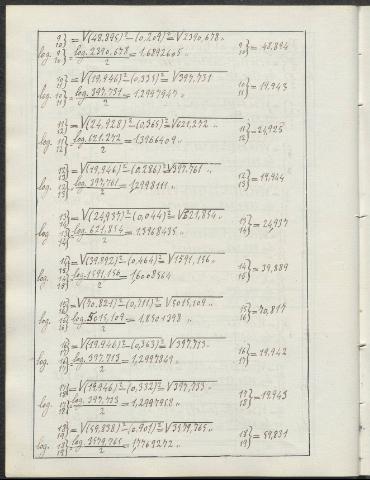 9/10} = √(48,895)²-(0,209)² = √2390,678 „
log. 9/10} = log.2390,678/2 = 1,6892605 „ 9/10} = 48,894
10/11} = √(19,946)²-(0,331)² = √397,731
log. 10/11} = log.397.731/2 = 1.2997947 „ 10/11} = 19,943
11/12} = √(24,928)²-(0,365)² = √621,272 „
log. 11/12} = log.621.272/2 = 13966409 „ 11/12} = 24,925
12/13} = √(19,946)²-(0,286)² = √397,761 „
log. 12/13} = log.397,761/2 = 1,2998111 „ 12/13} = 19,944
13/14} = √(24,937)²-(0,044)² = √621,854 „
log. 13/14} = log.621.854/2 = 1.3968435 „ 13/14} = 24,937
14/15} = √(39,892)²-(0,464)² = √1591,156 „
log. = log.1591,156/2 = 1,6008564 14/15} = 39,889
15/16} = √(70.821)²-(0,711)² = √5015,109 „
log. 15/16} = log.5015,109/2 = 1.8501398 „ 15/16} = 70,817
16/17} = √(19,946)²-(0,363)² = √397,713 „
log. 16/17} = log.397.713/2 = 1.2997849 „ 16/17} = 19,942
17/18} = √(19,946)²-(0,332)² = √397,733 „
log. 17/18} = log.397,733/2 = 1,2997958 „ 17/18} = 19.943
18/19} = √(59,838)²-(0.901)² = √3579,765 „
log. 18/19} = log.3579,765/2 = 1,7769272 „ 18/19} = 59,831